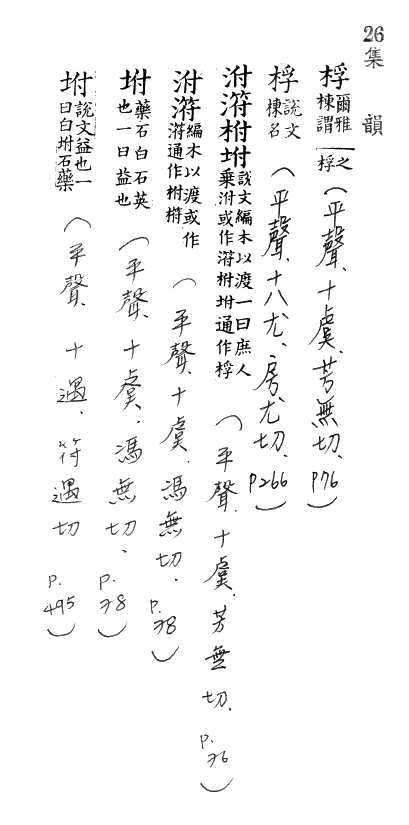 26
集韻
桴爾雅棟謂之桴(平聲、十虞、芳無切、P76)
桴說文棟名(平聲、十八尤、房尤切、P266)
泭滸柎坿說文編木以渡一曰庶人乘泭或作滸柎坿通作桴(平聲、十虞、芳無切、P.76)
泭編木以渡或作滸通作柎(平聲、十虞、馮無切、P.78)
坿藥石白石英也一曰益也(平聲、十虞、馮無切、P.78)
坿說文益也一曰白坿石藥(平聲、十遇、符遇切、P.495)